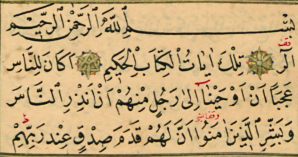 بسم الله الرحمن الرحيم
الر تلك ايات الكتاب الحكيم اكان للناس
عجبا ان اوحينا الى رجل منهم ان انذر الناس
وبشر الذين امنوا ان لهم قدم صدق عند ربهم